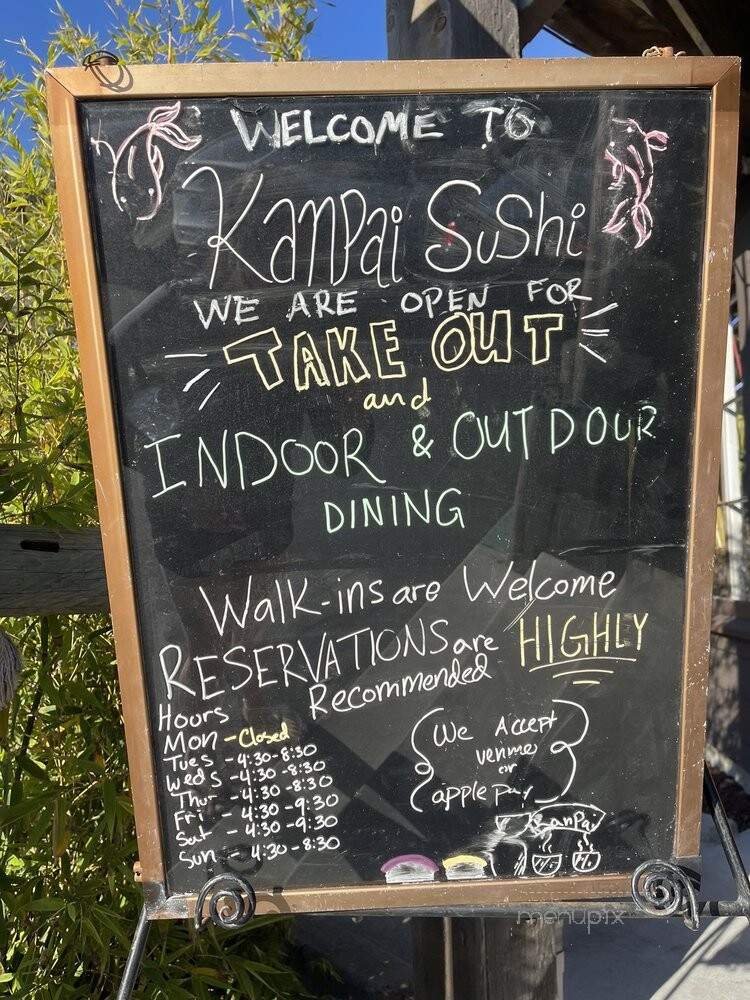 WELCOME TO
KanPai SuShi
WE ARE OPEN FOR
TAKE OUT
and
INDOOR & OUTDOUR
DINING
Walk-ins are Welcome
RESERVATIONS are HIGHLY
Recommended
Hours
Mon - Closed
Tues - 4:30-8:30
Weds - 4:30-8:30
Thur - 4:30-8:30
Fri - 4:30-9:30
Sat - 4:30-9:30
Sun - 4:30-8:30
We Accept
venmo
or
apple pay
KanPai
menupix